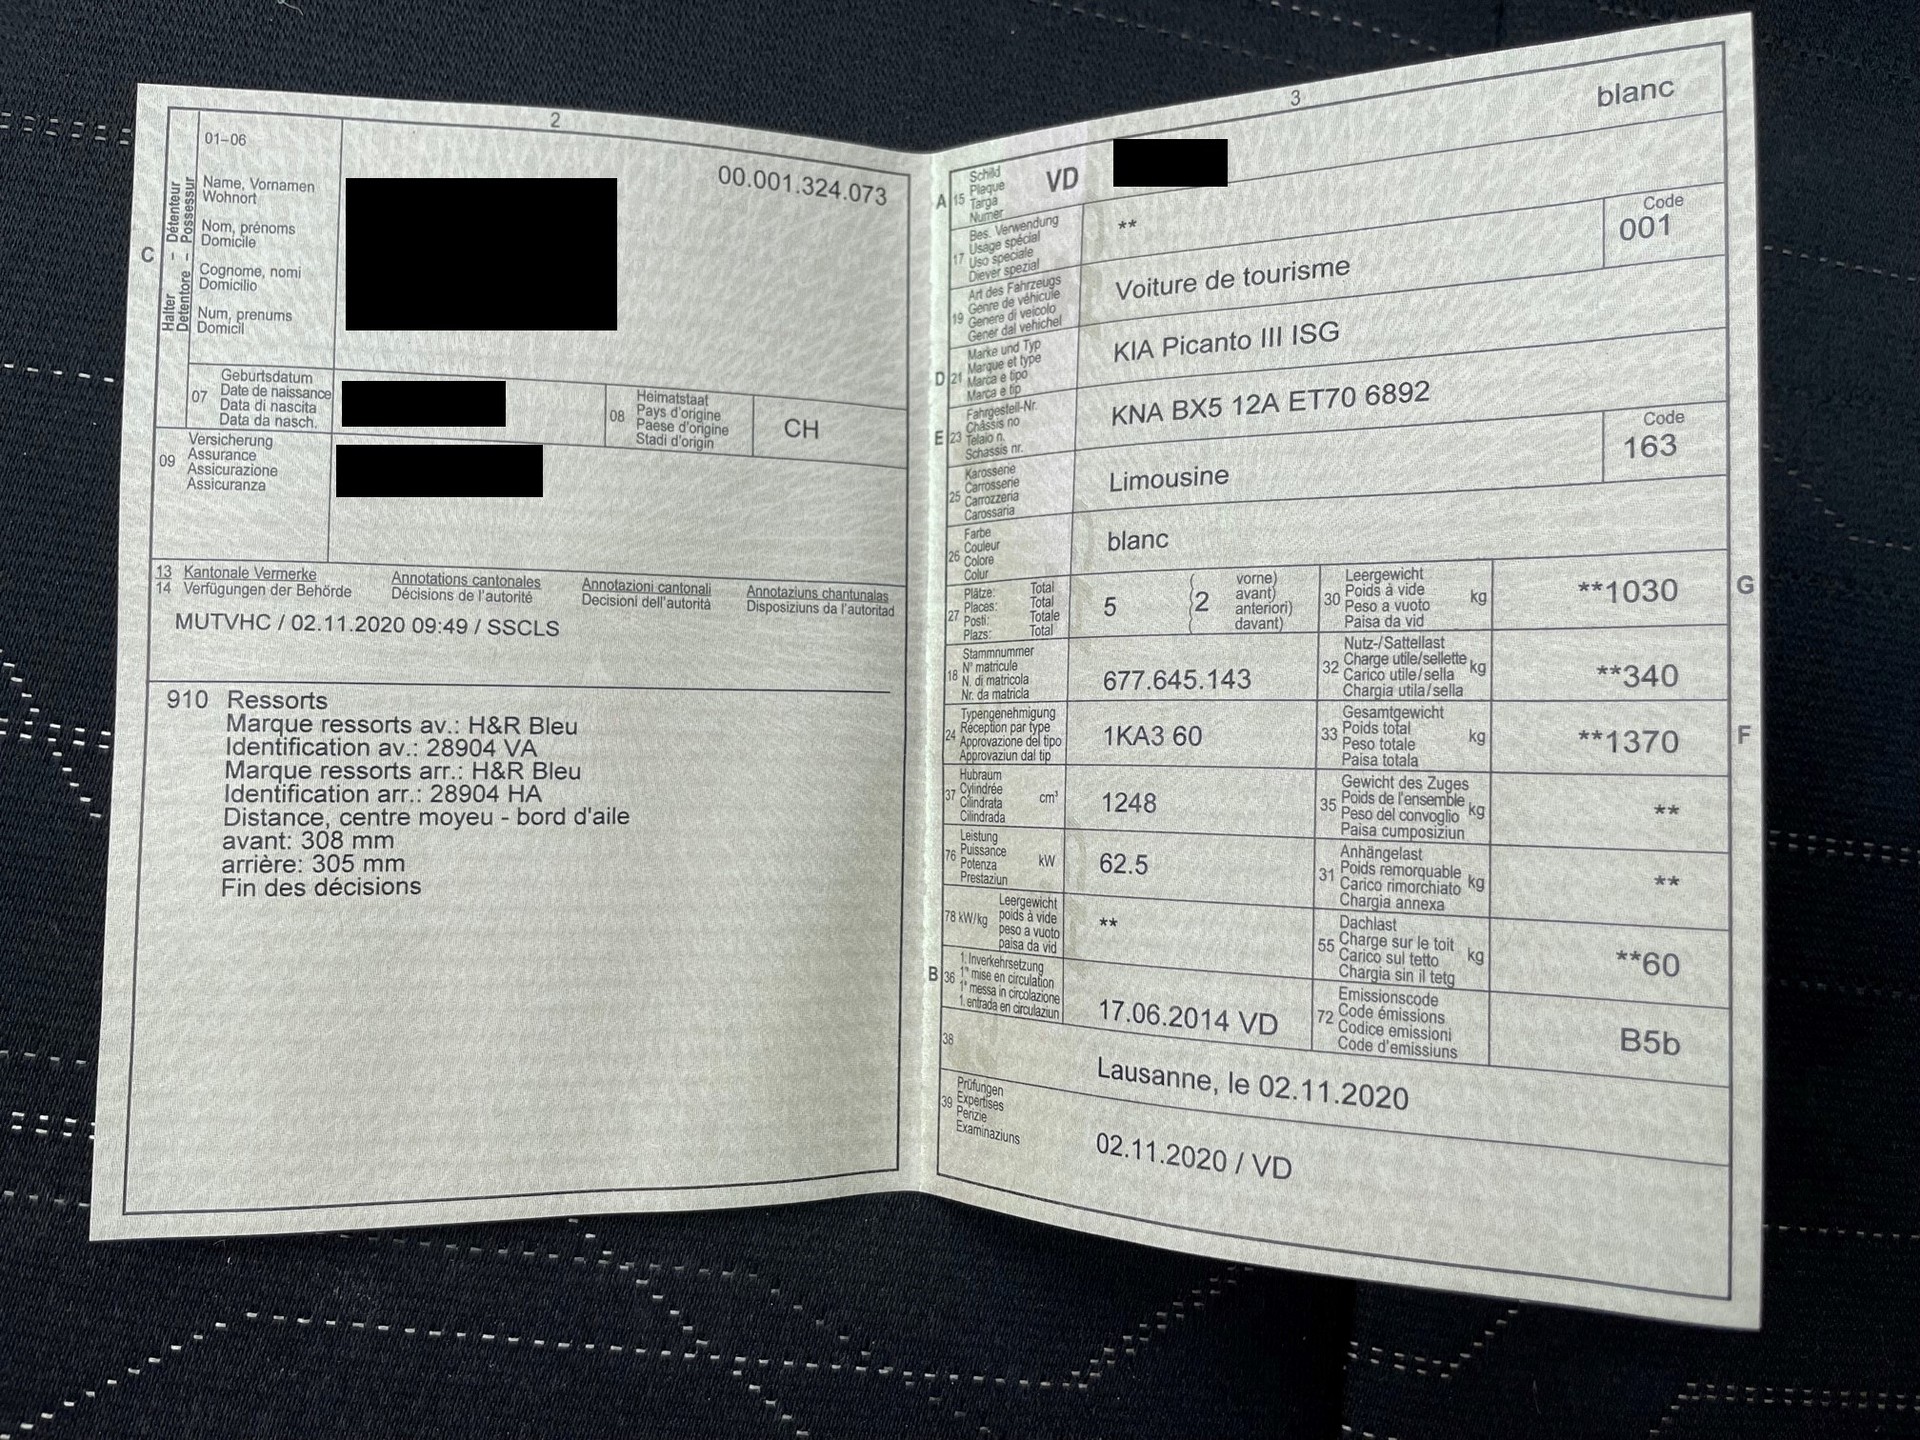 2
01–06
00.001.324.073
C
Halter – Détenteur
Detentore – Possessur
Name, Vornamen
Wohnort
Nom, prénoms
Domicile
Cognome, nomi
Domicilio
Num, prenums
Domicil
07
Geburtsdatum
Date de naissance
Data di nascita
Data da nasch.
08
Heimatstaat
Pays d'origine
Paese d'origine
Stadi d'origin
CH
09
Versicherung
Assurance
Assicurazione
Assicuranza
13 Kantonale Vermerke Annotations cantonales Annotazioni cantonali Annotaziuns chantunalas
14 Verfügungen der Behörde Décisions de l'autorité Decisioni dell'autorità Disposiziuns da l'autoritad
MUTVHC / 02.11.2020 09:49 / SSCLS
910 Ressorts
Marque ressorts av.: H&R Bleu
Identification av.: 28904 VA
Marque ressorts arr.: H&R Bleu
Identification arr.: 28904 HA
Distance, centre moyeu - bord d'aile
avant: 308 mm
arrière: 305 mm
Fin des décisions
3
blanc
A 15
Schild
Plaque
Targa
Numer
VD
17
Bes. Verwendung
Usage spécial
Uso speciale
Diever spezial
**
19
Art des Fahrzeugs
Genre de véhicule
Genere di veicolo
Gener dal vehichel
Voiture de tourisme
Code
001
D 21
Marke und Typ
Marque et type
Marca e tipo
Marca e tip
KIA Picanto III ISG
E 23
Fahrgestell-Nr.
Châssis no
Telaio n.
Schassis nr.
KNA BX5 12A ET70 6892
25
Karosserie
Carrosserie
Carrozzeria
Carossaria
Limousine
Code
163
26
Farbe
Couleur
Colore
Colur
blanc
27
Plätze: Total
Places: Total
Posti: Totale
Plazs: Total
5
(2
vorne)
avant)
anteriori)
davant)
30
Leergewicht
Poids à vide
Peso a vuoto
Paisa da vid
kg
**1030
G
18
Stammnummer
N° matricule
N. di matricola
Nr. da matricla
677.645.143
32
Nutz-/Sattellast
Charge utile/sellette
Carico utile/sella
Chargia utila/sella
kg
**340
24
Typengenehmigung
Réception par type
Approvazione del tipo
Approvaziun dal tip
1KA3 60
33
Gesamtgewicht
Poids total
Peso totale
Paisa totala
kg
**1370
F
37
Hubraum
Cylindrée
Cilindrata
Cilindrada
cm³
1248
35
Gewicht des Zuges
Poids de l'ensemble
Peso del convoglio
Paisa cumposiziun
kg
**
76
Leistung
Puissance
Potenza
Prestaziun
kW
62.5
31
Anhängelast
Poids remorquable
Carico rimorchiato
Chargia annexa
kg
**
78 kW/kg
Leergewicht
poids à vide
peso a vuoto
paisa da vid
**
55
Dachlast
Charge sur le toit
Carico sul tetto
Chargia sin il tetg
kg
**60
B 36
1. Inverkehrsetzung
1re mise en circulation
1a messa in circolazione
1. entrada en circulaziun
17.06.2014 VD
72
Emissionscode
Code émissions
Codice emissioni
Code d'emissiuns
B5b
38
Lausanne, le 02.11.2020
39
Prüfungen
Expertises
Perizie
Examinaziuns
02.11.2020 / VD